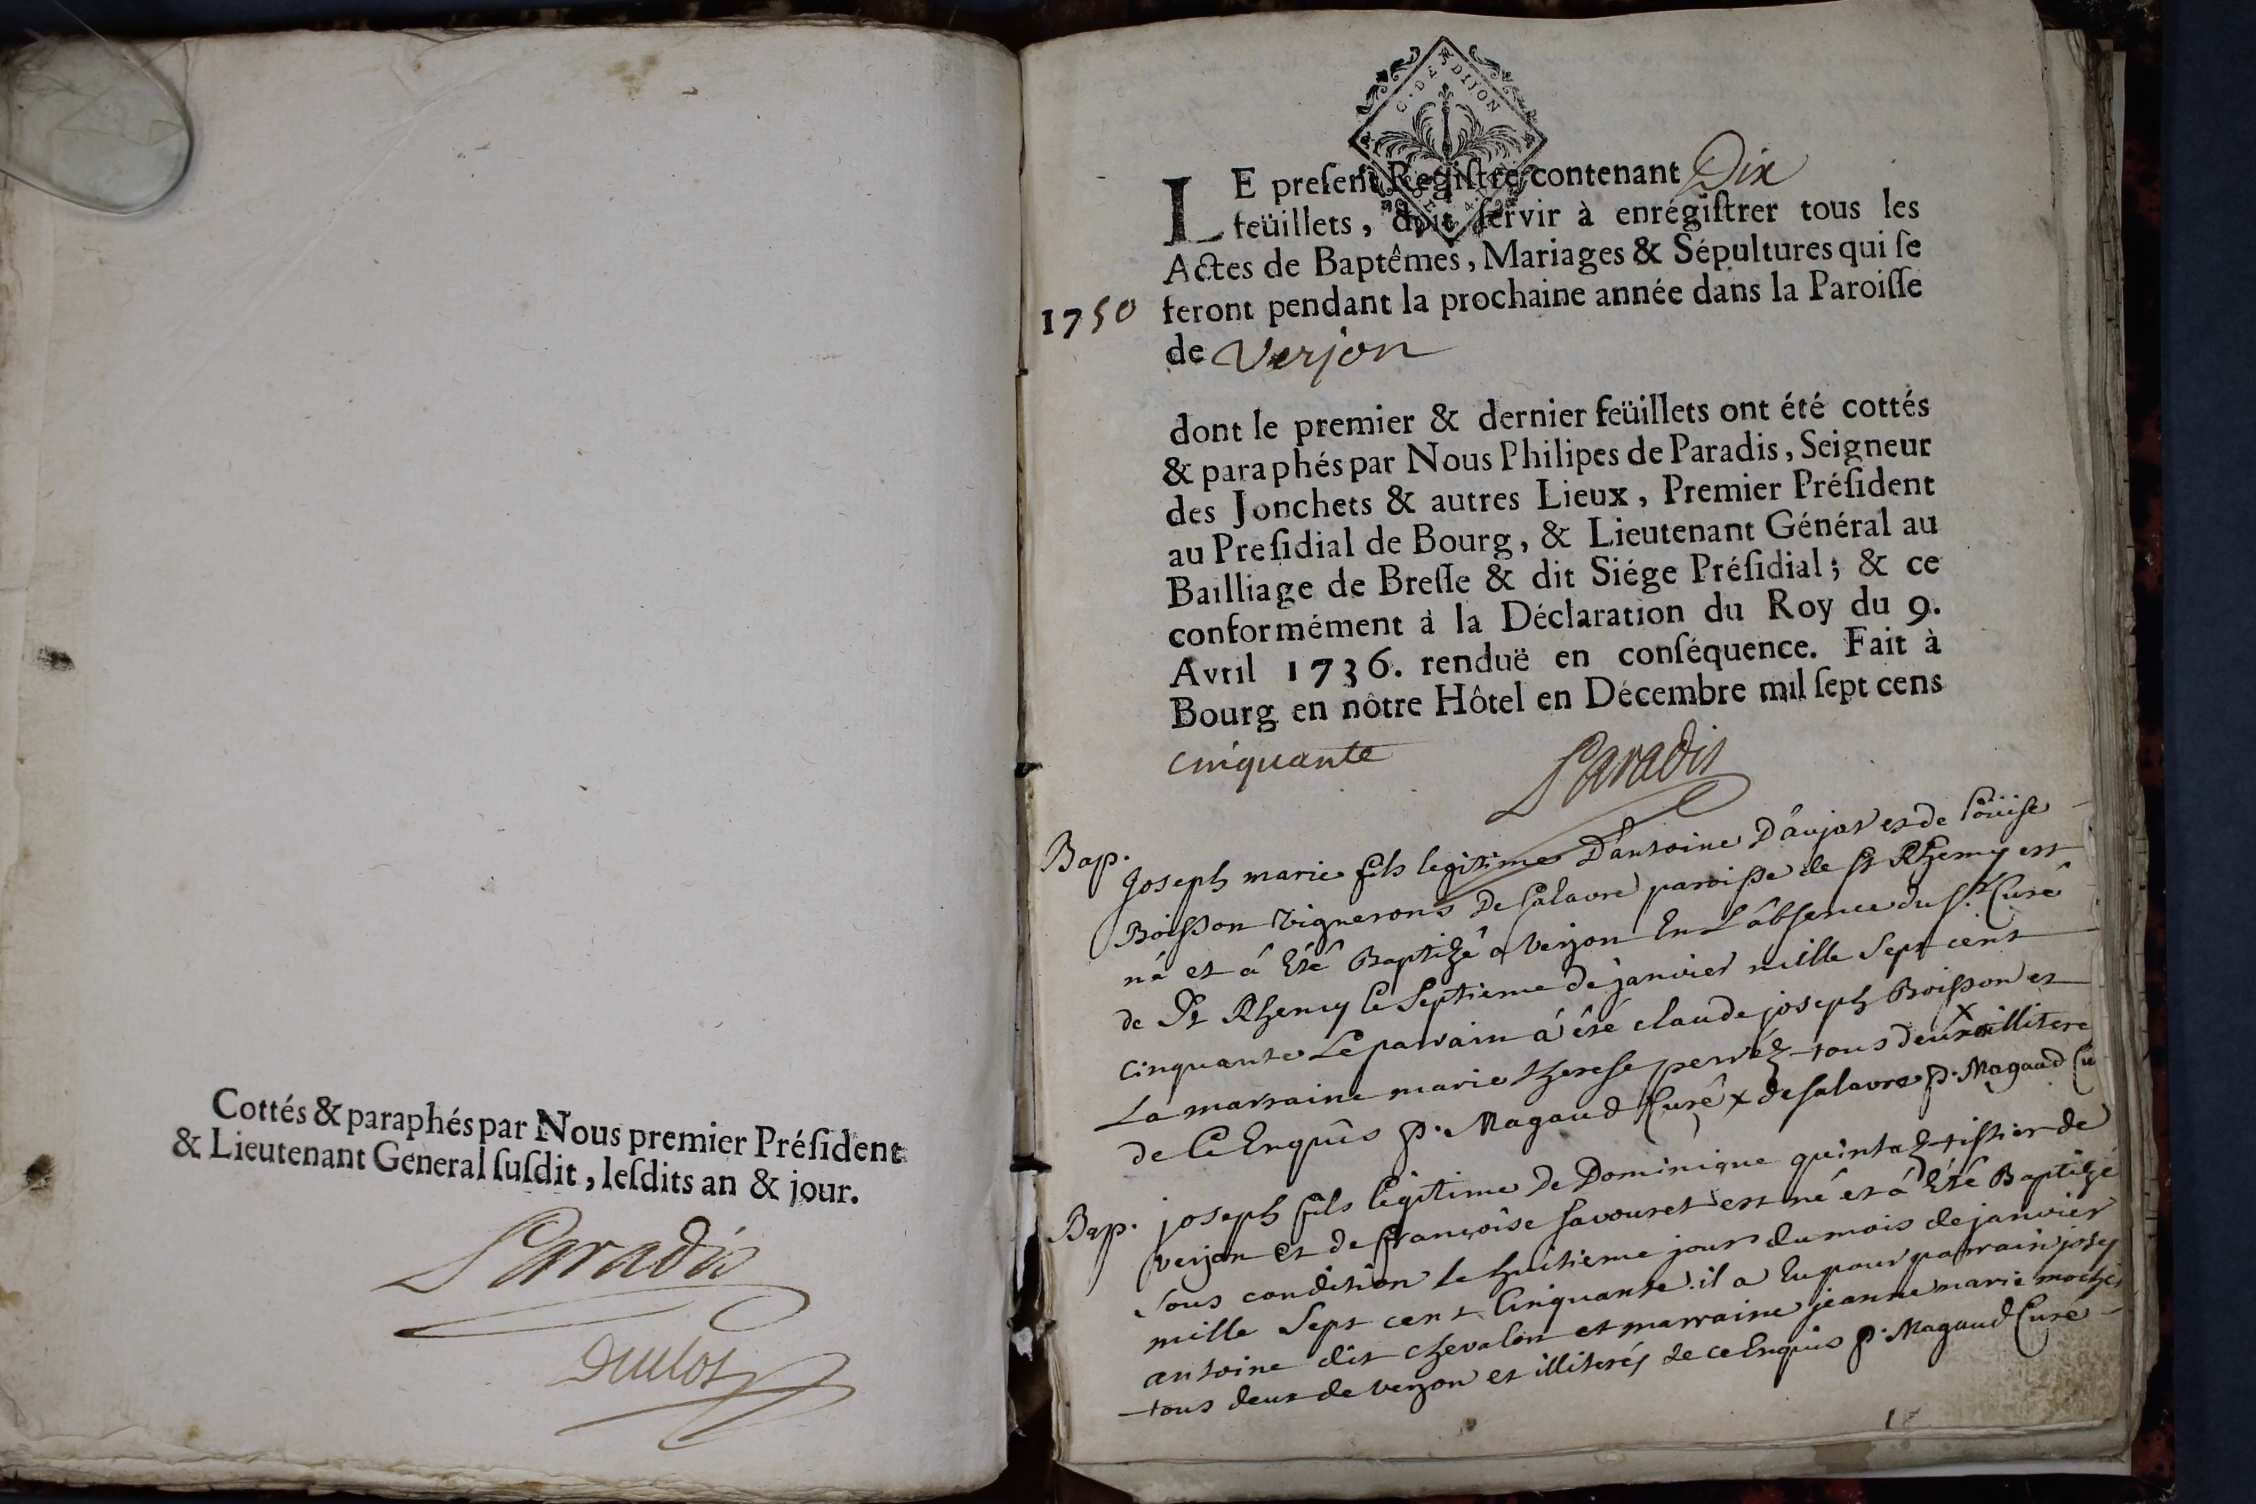 Cottés & paraphés par Nous premier Préſident
& Lieutenant General ſuſdit, leſdits an & jour.
Paradis
Duclos
G. DE DIJON
LE preſent Regiſtre contenant Dix
feüillets, doit ſervir à enrégiſtrer tous les
Actes de Baptêmes, Mariages & Sépultures qui ſe
1750 feront pendant la prochaine année dans la Paroiſſe
de Verjon
dont le premier & dernier feüillets ont été cottés
& paraphés par Nous Philipes de Paradis, Seigneur
des Jonchets & autres Lieux, Premier Préſident
au Preſidial de Bourg, & Lieutenant Général au
Bailliage de Breſſe & dit Siége Préſidial; & ce
conformément à la Déclaration du Roy du 9.
Avril 1736. renduë en conſéquence. Fait à
Bourg en nôtre Hôtel en Décembre mil ſept cens
cinquante
Paradis
Bap. Joseph marie fils legitime D'antoine D'aujat et de Loüise
Boisson vignerons De Salavre paroisse de St Rhemy est
né et á Eté Baptizé a verjon En L'absence du Sr. Curé
de St Rhemy le Septieme de janvier mille Sept cent
cinquante Le parrain á été claude joseph Boisson et
La marraine marie therese perret tous deux x illiteré
de Ce Enquis P. Magaud Curé x de salavre P. Magaud Cu
Bap. joseph fils legitime De Dominique quintaz tissier de
verjon et de françoise Savouret est né et á Eté Baptizé
sous condition le huitieme jour du mois de janvier
mille Sept cent Cinquante. il a Eu pour parrain josep
antoine dit chevalon et marraine jeanne marie
tous deux de verjon et illiterés de ce Enquis P. Magaud Curé
1